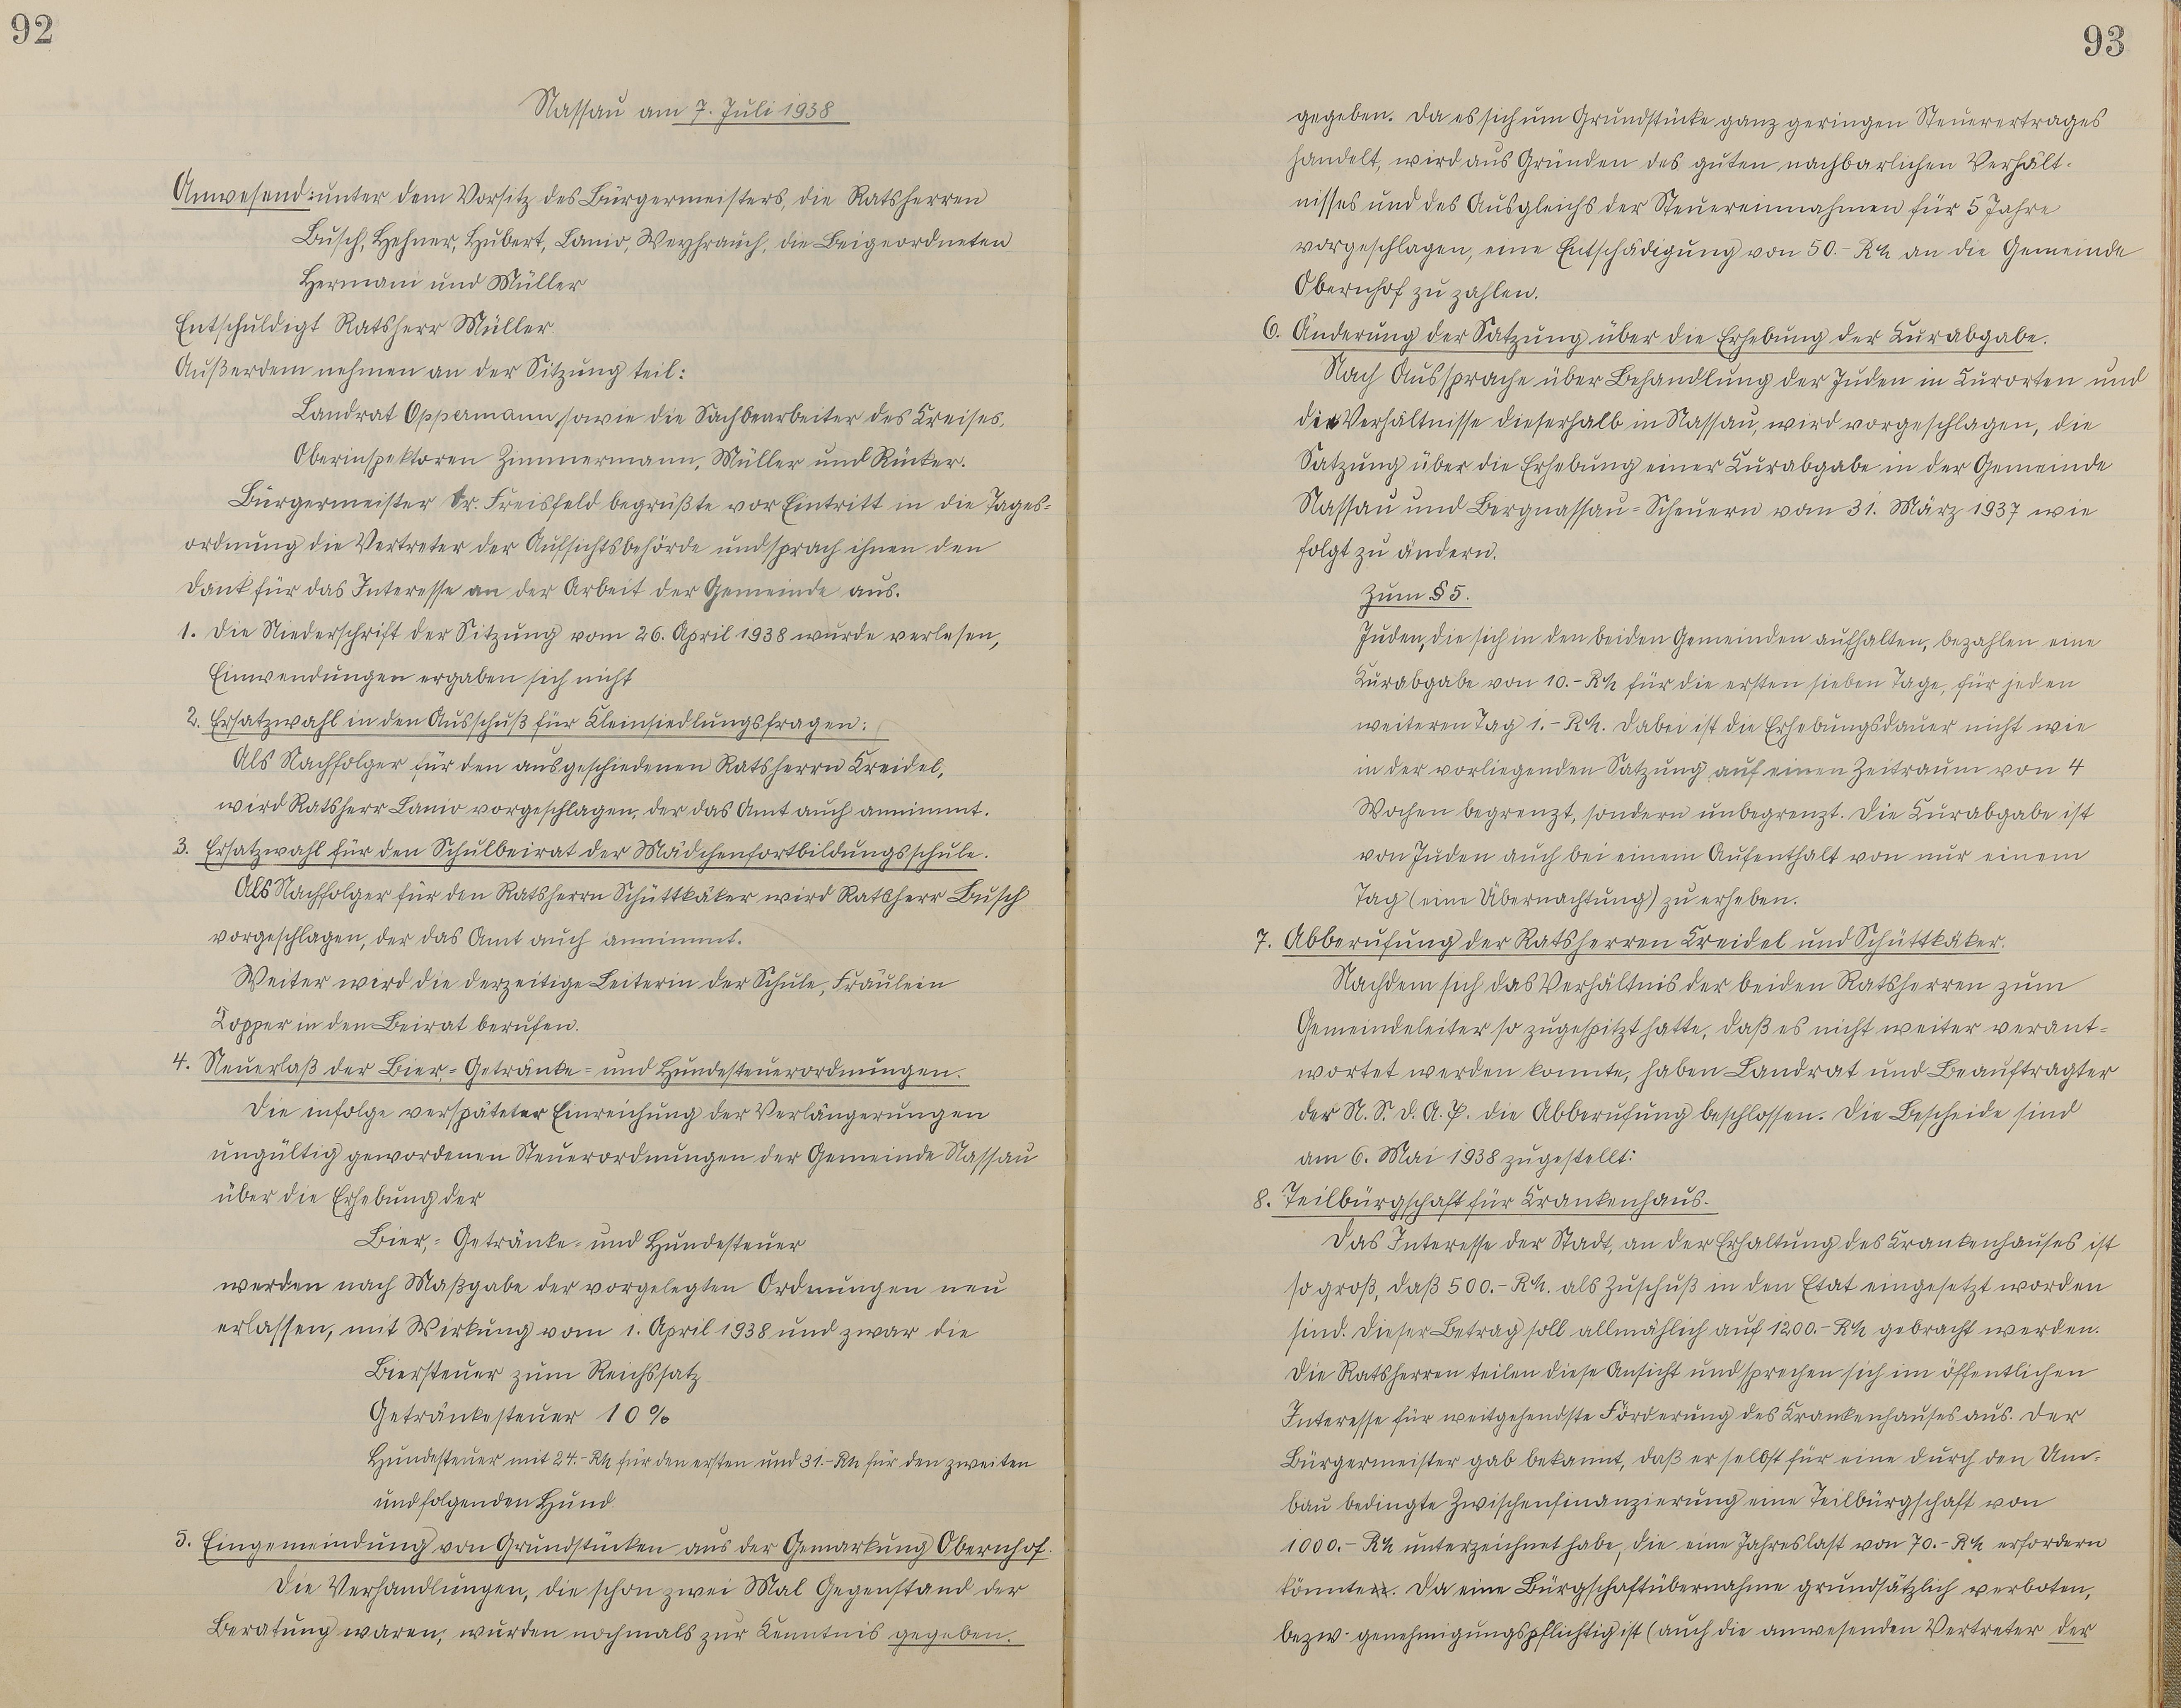 92
Nassau am 7. Juli 1938
Anwesend: unter dem Vorsitz des Bürgermeisters, die Ratsherren
Busch, Hehner, Hubert, Lanio, Weyhrauch, die Beigeordneten
Hermani und Müller
Entschuldigt Ratsherr Müller
Außerdem nehmen an der Sitzung teil:
Landrat Oppermann, sowie die Sachbearbeiter des Kreises,
Oberinspektoren Zimmermann, Müller und Rücker.
Bürgermeister Dr. Freisfeld begrüßte vor Eintritt in die Tages-
ordnung die Vertreter der Aufsichtsbehörde und sprach ihnen den
Dank für das Interesse an der Arbeit der Gemeinde aus.
1. Die Niederschrift der Sitzung vom 26. April 1938 wurde verlesen,
Einwendungen ergaben sich nicht
2. Ersatzwahl in den Ausschuß für Kleinsiedlungsfragen:
Als Nachfolger für den ausgeschiedenen Ratsherrn Kreidel,
wird Ratsherr Lanio vorgeschlagen, der das Amt auch annimmt.
3. Ersatzwahl für den Schulbeirat der Mädchenfortbildungsschule.
Als Nachfolger für den Ratsherrn Schüttkäker wird Ratsherr Busch
vorgeschlagen, der das Amt auch annimmt.
Weiter wird die derzeitige Leiterin der Schule, Fräulein
Zopper in den Beirat berufen.
4. Neuerlaß der Bier-, Getränke- und Hundesteuerordnungen.
Die infolge verspäteter Einreichung der Verlängerungen
ungültig gewordenen Steuerordnungen der Gemeinde Nassau
über die Erhebung der
Bier,- Getränke- und Hundesteuer
werden nach Maßgabe der vorgelegten Ordnungen neu
erlassen, mit Wirkung vom 1. April 1938 und zwar die
Biersteuer zum Reichssatz
Getränkesteuer 10%
Hundesteuer mit 24.- RM für den ersten und 31.- RM für den zweiten
und folgenden Hund
5. Eingemeindung von Grundstücken aus der Gemarkung Obernhof.
Die Verhandlungen, die schon zwei Mal Gegenstand der
Beratung waren, wurden nochmals zur Kenntnis gegeben.
93
gegeben. Da es sich um Grundstücke ganz geringen Steuerertrages
handelt, wird aus Gründen des guten nachbarlichen Verhält-
nisses und des Ausgleichs der Steuereinnahmen für 5 Jahre
vorgeschlagen, eine Entschädigung von 50.- RM an die Gemeinde
Obernhof zu zahlen.
6. Änderung der Satzung über die Erhebung der Kurabgabe.
Nach Aussprache über Behandlung der Juden in Kurorten und
die Verhältnisse dieserhalb in Nassau, wird vorgeschlagen, die
Satzung über die Erhebung einer Kurabgabe in der Gemeinde
Nassau und Bergnassau-Scheuern vom 31. März 1937 wie
folgt zu ändern.
Zum § 5.
Juden, die sich in den beiden Gemeinden aufhalten, bezahlen eine
Kurabgabe von 10.- RM für die ersten sieben Tage, für jeden
weiteren Tag 1.- RM. Dabei ist die Erhebungsdauer nicht wie
in der vorliegenden Satzung auf einen Zeitraum von 4
Wochen begrenzt, sondern unbegrenzt. Die Kurabgabe ist
von Juden auch bei einem Aufenthalt von nur einem
Tag (eine Übernachtung) zu erheben.
7. Abberufung der Ratsherren Kreidel und Schüttkäker.
Nachdem sich das Verhältnis der beiden Ratsherren zum
Gemeindeleiter so zugespitzt hatte, daß es nicht weiter verant-
wortet werden konnte, haben Landrat und Beauftragter
der N. S. D. A. P. die Abberufung beschlossen. Die Bescheide sind
am 6. Mai 1938 zugestellt.
8. Teilbürgschaft für Krankenhaus.
Das Interesse der Stadt, an der Erhaltung des Krankenhauses ist
so groß, daß 500.- RM. als Zuschuß in den Etat eingesetzt worden
sind. Dieser Betrag soll allmählich auf 1200.- RM gebracht werden.
Die Ratsherren teilen diese Ansicht und sprechen sich im öffentlichen
Interesse für weitgehendste Förderung des Krankenhauses aus. Der
Bürgermeister gab bekannt, daß er selbst für eine durch den Um-
bau bedingte Zwischenfinanzierung eine Teilbürgschaft von
1000.- RM unterzeichnet habe, die eine Jahreslast von 70.- RM erfordern
könnte. Da eine Bürgschaftübernahme grundsätzlich verboten,
bezw. genehmigungspflichtig ist (auch die anwesenden Vertreter der